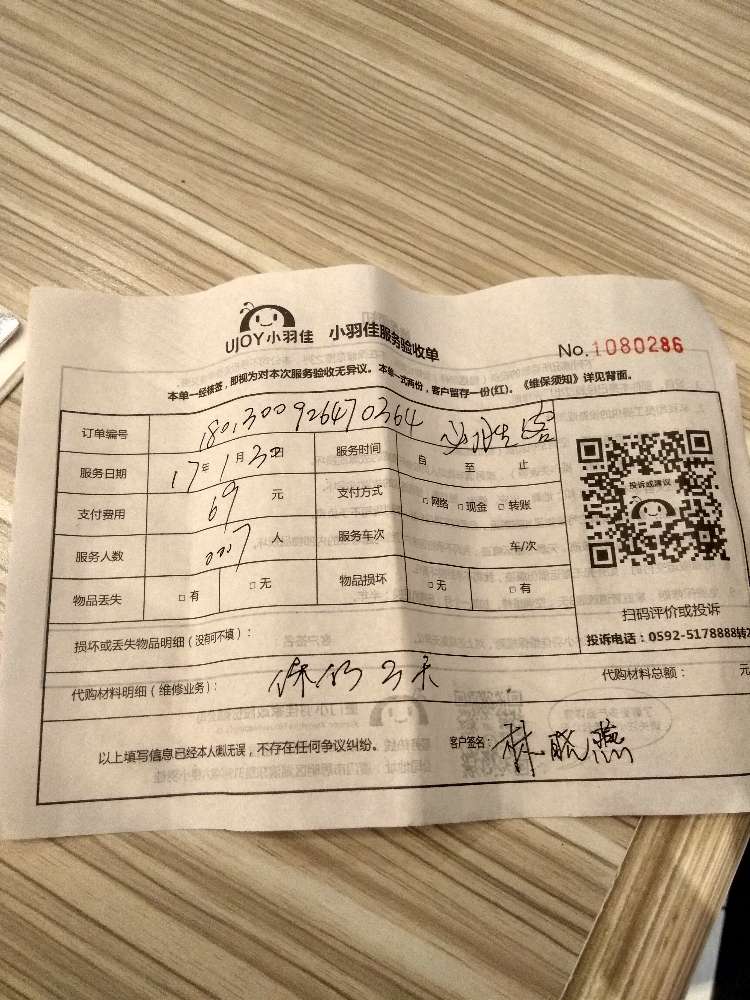 UJOY小羽佳 小羽佳服务验收单
No.1080286
本单一经核签，即视为对本次服务验收无异议。本单一式两份，客户留存一份(红)。《维保须知》详见背面。
订单编号 1801300926470364
服务日期 17年1月3日 服务时间 自 至 止
支付费用 69元 支付方式 □网络 □现金 □转账
服务人数 0007人 服务车次 车/次
物品丢失 □有 □无 物品损坏 □无 □有
投诉或建议
扫码评价或投诉
投诉电话：0592-5178888转2
损坏或丢失物品明细（没有可不填）：
代购材料明细（维修业务）： 代购材料总额： 元
以上填写信息已经本人阅无误，不存在任何争议纠纷。 客户签名：林晓燕